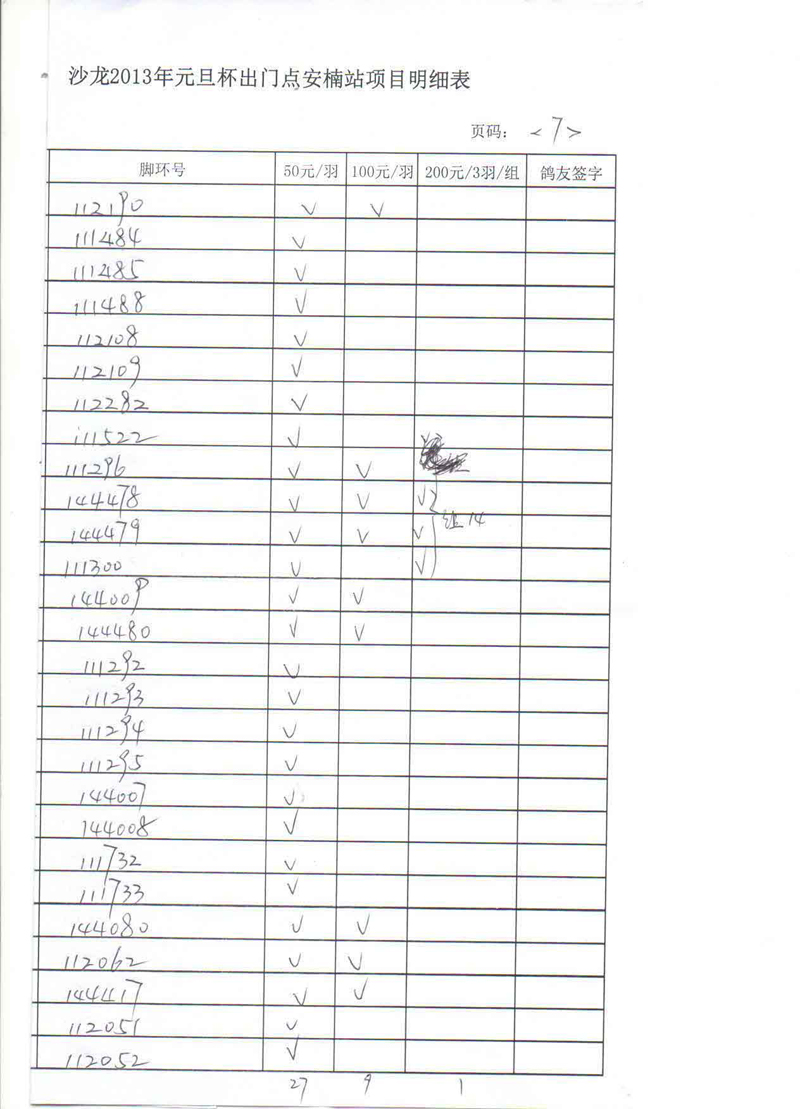 沙龙2013年元旦杯出门点安楠站项目明细表
页码： <7>
脚环号 50元/羽 100元/羽 200元/3羽/组 鸽友签字
112190 √ √
111484 √
111485 √
111488 √
112108 √
112109 √
112282 √
111522 √
111296 √ √
144478 √ √ √
144479 √ √ √ 组14
111300 √ √
144009 √ √
144480 √ √
111292 √
111293 √
111294 √
111295 √
144007 √
144008 √
111732 √
111733 √
144080 √ √
112062 √ √
144417 √ √
112051 √
112052 √
27 9 1